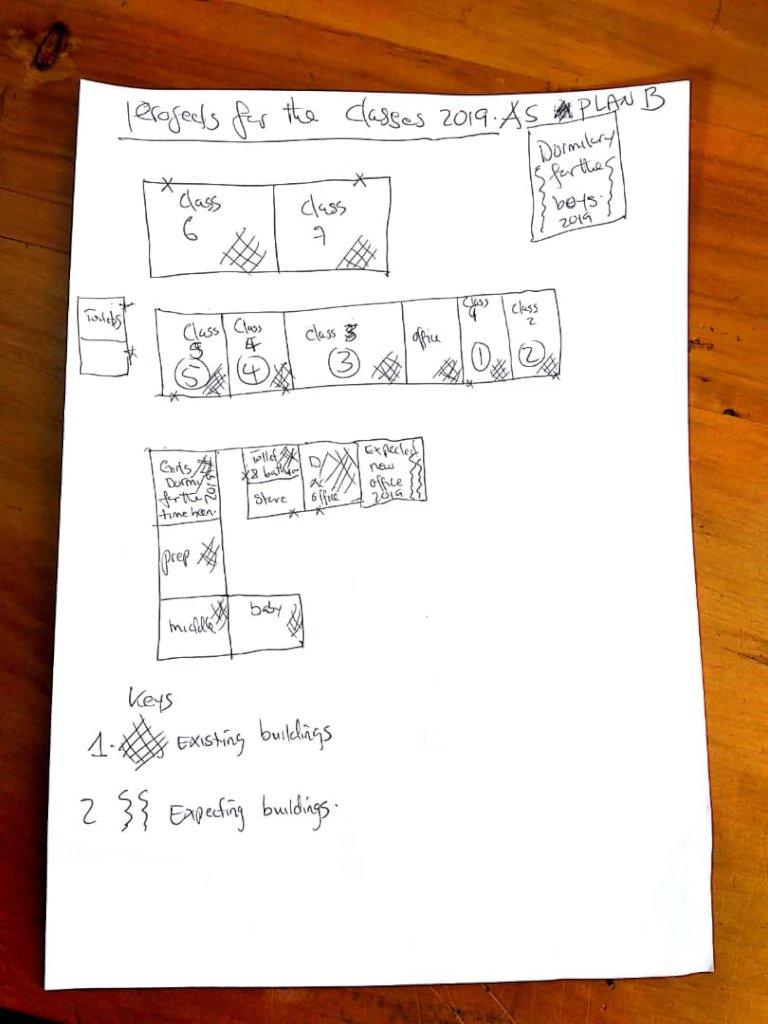 Projects for the Classes 2019. AS PLAN B
Dormitory
for the
boys.
2019
Class
6
Class
7
Toilets
Class
5
5
Class
4
4
Class 3
3
office
Class
1
1
Class
2
2
Girls
Dormy
for the
time been.
2019
toilet
& bathroom
Store
D
office
Expected
new
office
2019
prep
middle
baby
Keys
1. Existing buildings
2 Expecting buildings.